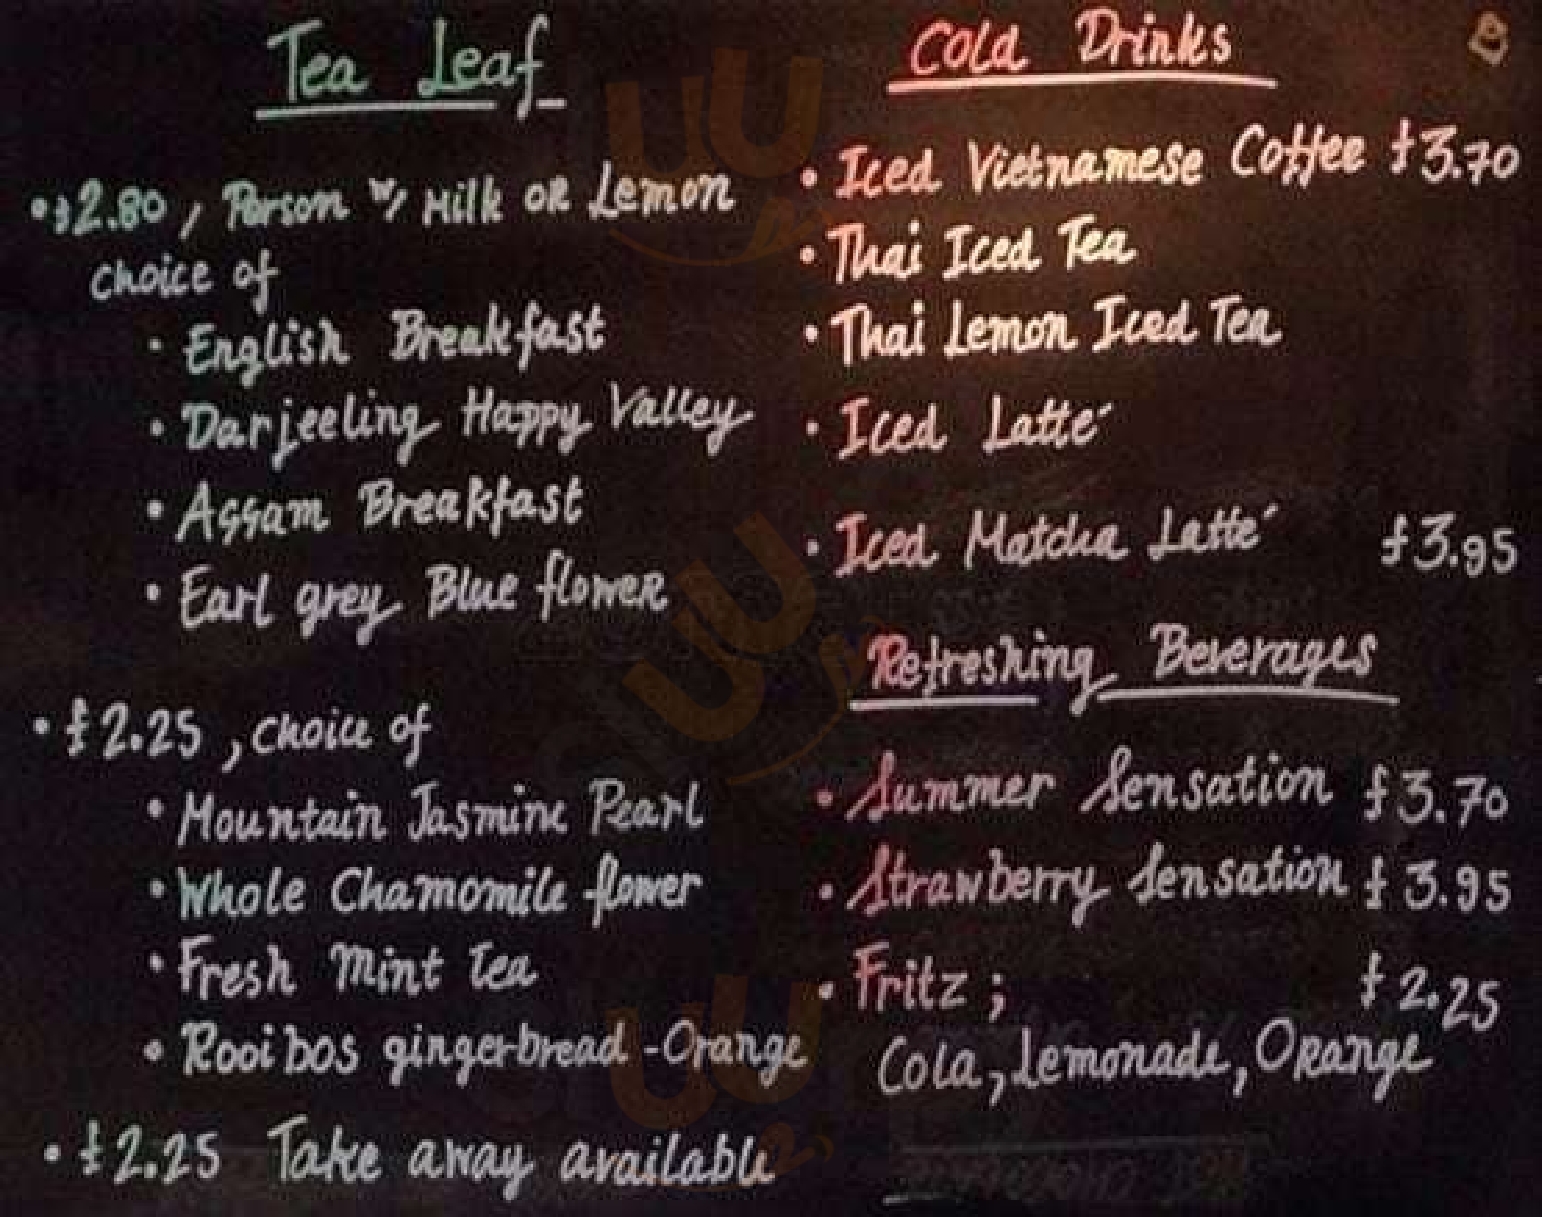 Tea Leaf
• £2.80, Person w/ Milk OR Lemon
choice of
• English Breakfast
• Darjeeling Happy Valley
• Assam Breakfast
• Earl grey Blue flower
• £2.25, choice of
• Mountain Jasmine Pearl
• Whole Chamomile flower
• Fresh Mint Tea
• Rooibos gingerbread-Orange
• £2.25 Take away available
Cold Drinks
• Iced Vietnamese Coffee £3.70
• Thai Iced Tea
• Thai Lemon Iced Tea
• Iced Latté
• Iced Matcha Latté £3.95
Refreshing Beverages
• Summer Sensation £3.70
• Strawberry Sensation £3.95
• Fritz; £2.25
Cola, Lemonade, Orange